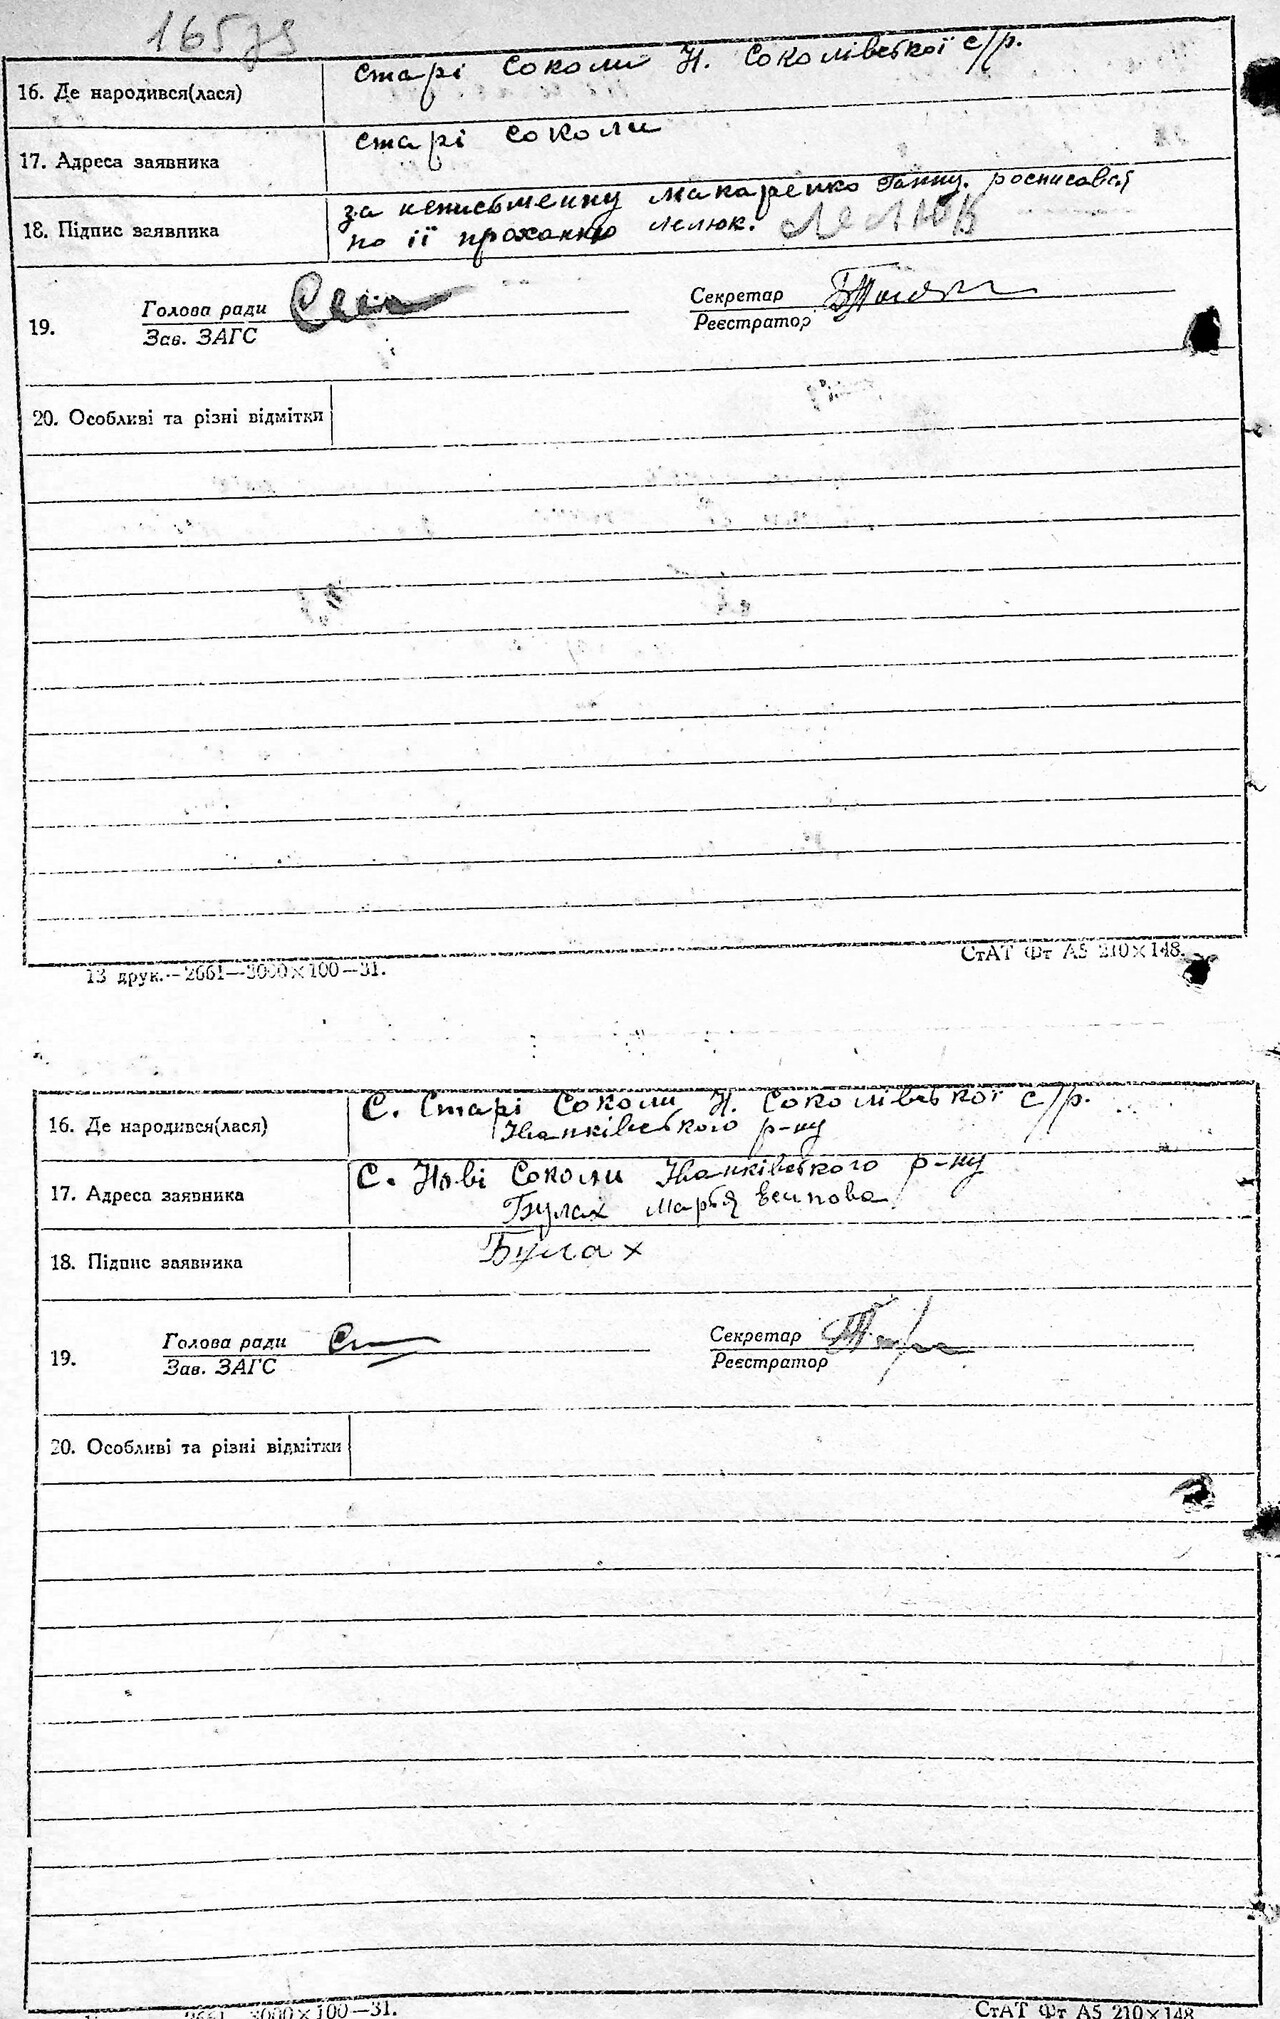 165
старі соколи Н. Соколівської с/р.
16. Де народився(лася)
старі соколи
17. Адреса заявника
за неписьменну макаренко Ганну. росписавсь
18. Підпис заявника
по її проханню Лелюк. Лелюк
Голова ради
Секретар
19.
Зав. ЗАГС
Реєстратор
20. Особливі та різні відмітки
13 друк.—2661—3000×100—31.
СтАТ Фт А5 210×148.
С. Старі Соколи Н. Соколівської с/р.
16. Де народився(лася)
Іванківського р-ну
С. Нові Соколи Іванківського р-ну
17. Адреса заявника
Булах Марья Есипова
18. Підпис заявника
Булах
Голова ради
Секретар
19.
Зав. ЗАГС
Реєстратор
20. Особливі та різні відмітки
2661—3000×100—31.
СтАТ Фт А5 210×148